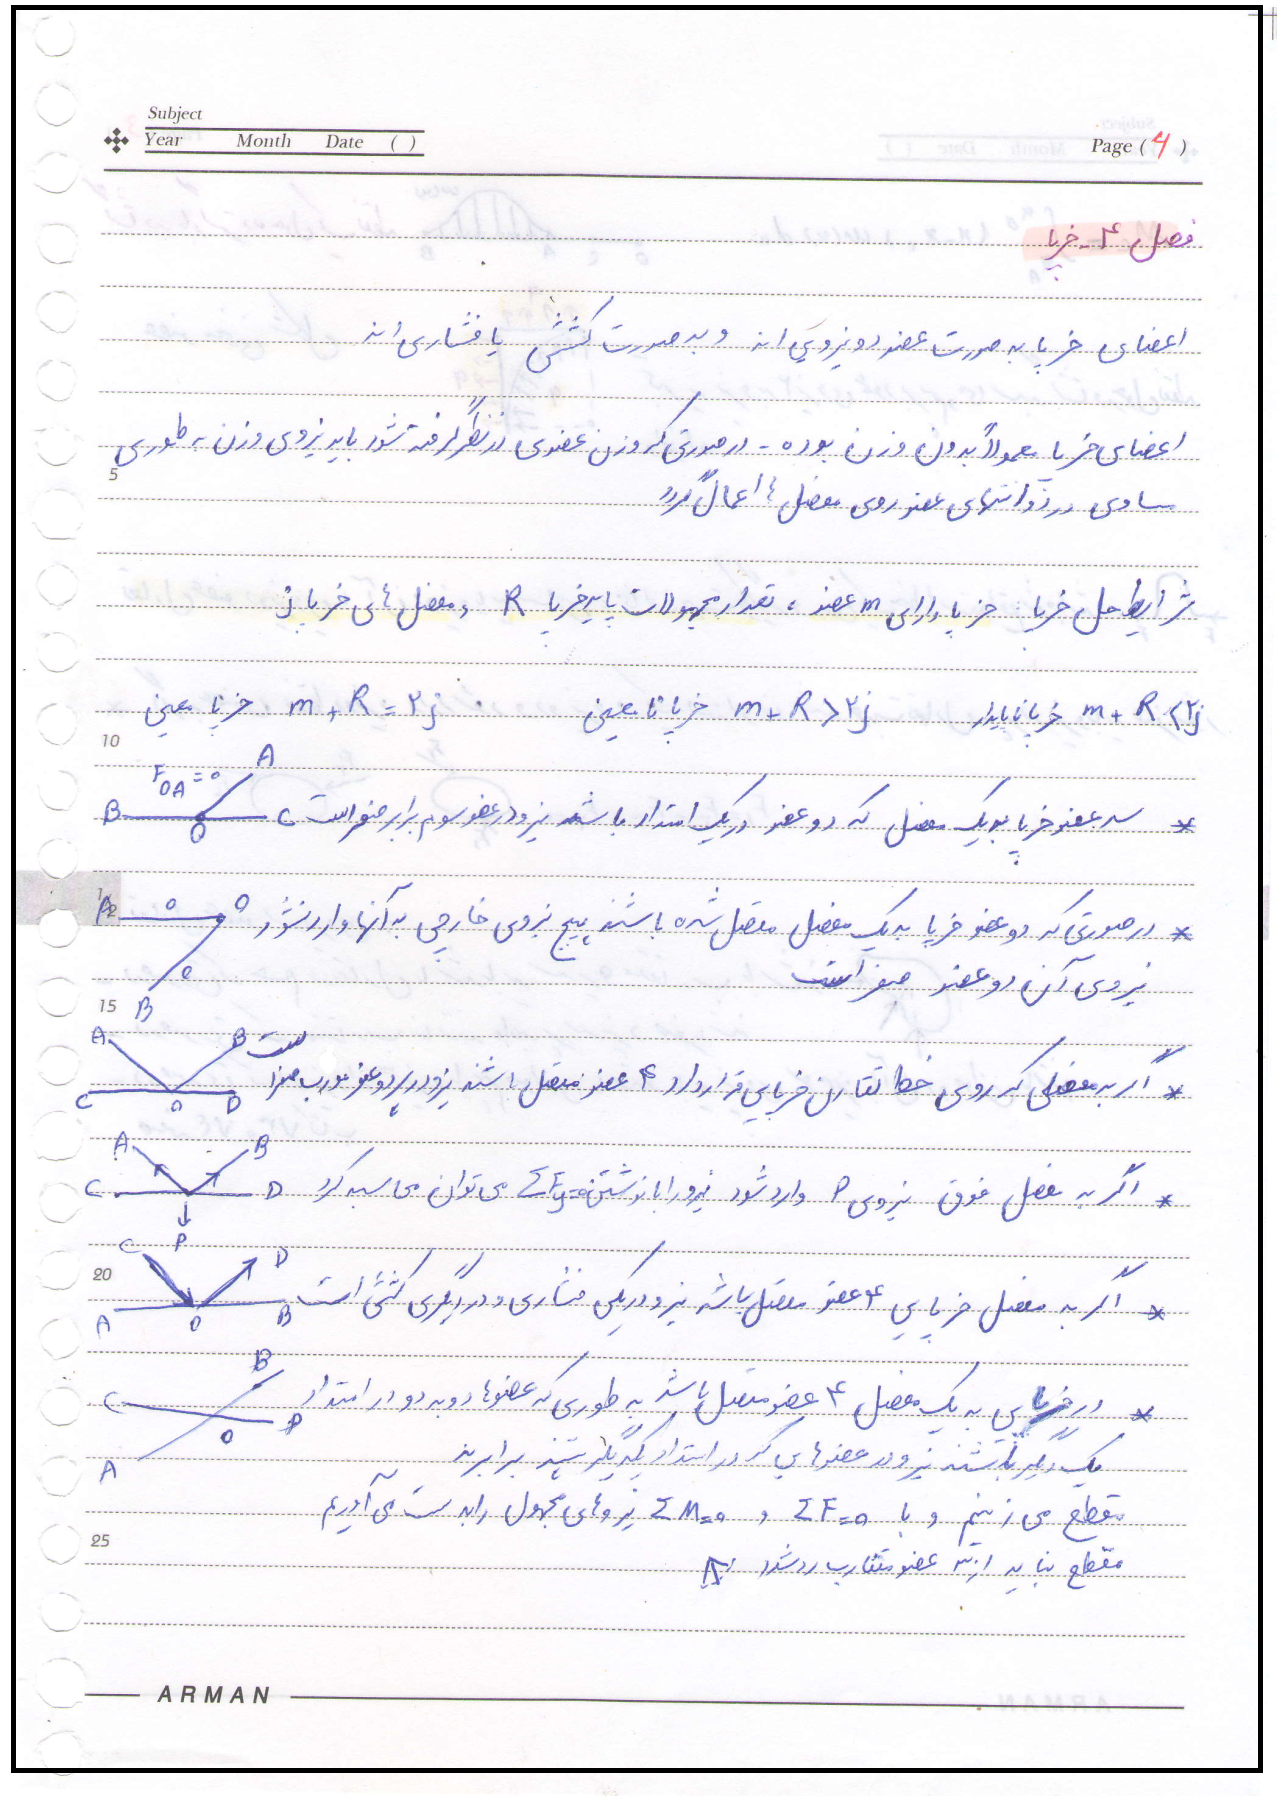 Subject
Year Month Date ( )
Page (4)
فصل ۴ - خرپا
اعضای خرپا به صورت عضو دو نیرویی اند و به صورت کششی یا فشاری اند
اعضای خرپا معمولاً بدون وزن بوده - در صورتی که وزن عضوی در نظر گرفته شود باید نیروی وزن به طوری
5
مساوی در انتهای عضو روی مفصل ها اعمال گردد
شرایط حل خرپا خرپا دارای m عضو ، تعداد مجهولات پایه خرپا R ومفصل های خرپا j
m + R < ۲j خرپا ناپایدار m + R > ۲j خرپا نامعین m + R = ۲j خرپا معین
10
F OA = 0 A
B O C
* سه عضو خرپا به یک مفصل که دو عضو در یک امتداد باشند نیرو در عضو سوم برابر صفر است
A 0 O
* در صورتی که دو عضو خرپا به یک مفصل متصل شده باشند هیچ نیروی خارجی به آنها وارد نشود
0
نیروی آن دو عضو صفر است
15 B
A B
* اگر به مفصلی که روی خط تقارن خرپایی قرار دارد ۴ عضو متصل باشند نیرو در دو عضو مورب صفر است
C O D
A B
* اگر به مفصل فوق نیروی P وارد شود نیرو را با نوشتن ΣFy=0 می توان محاسبه کرد
C D
P
C D
20
* اگر به مفصل خرپایی ۴ عضو متصل باشد نیرو در یکی فشاری و در دیگری کششی است
A O B
B
* در خرپایی به یک مفصل ۴ عضو متصل باشد به طوری که عضوها دو به دو در امتداد
C D
O
یکدیگر باشند نیرو در عضوهایی که در امتداد یکدیگر هستند برابرند
A
مقطع می زنیم و با ΣF=0 و ΣM=0 نیروهای مجهول را به دست می آوریم
25
مقطع نباید از سه عضو متقارب رد شود
ARMAN